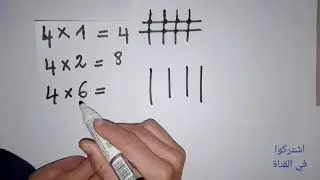 4 × 1 = 4
4 × 2 = 8
4 × 6 =
اشتركوا
في القناة